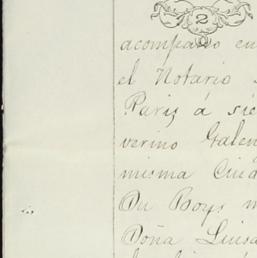 2
acompaso en
el Notario
Paris á sie
verino Galen
misma Ciud
Du Boys m
Doña Luisa